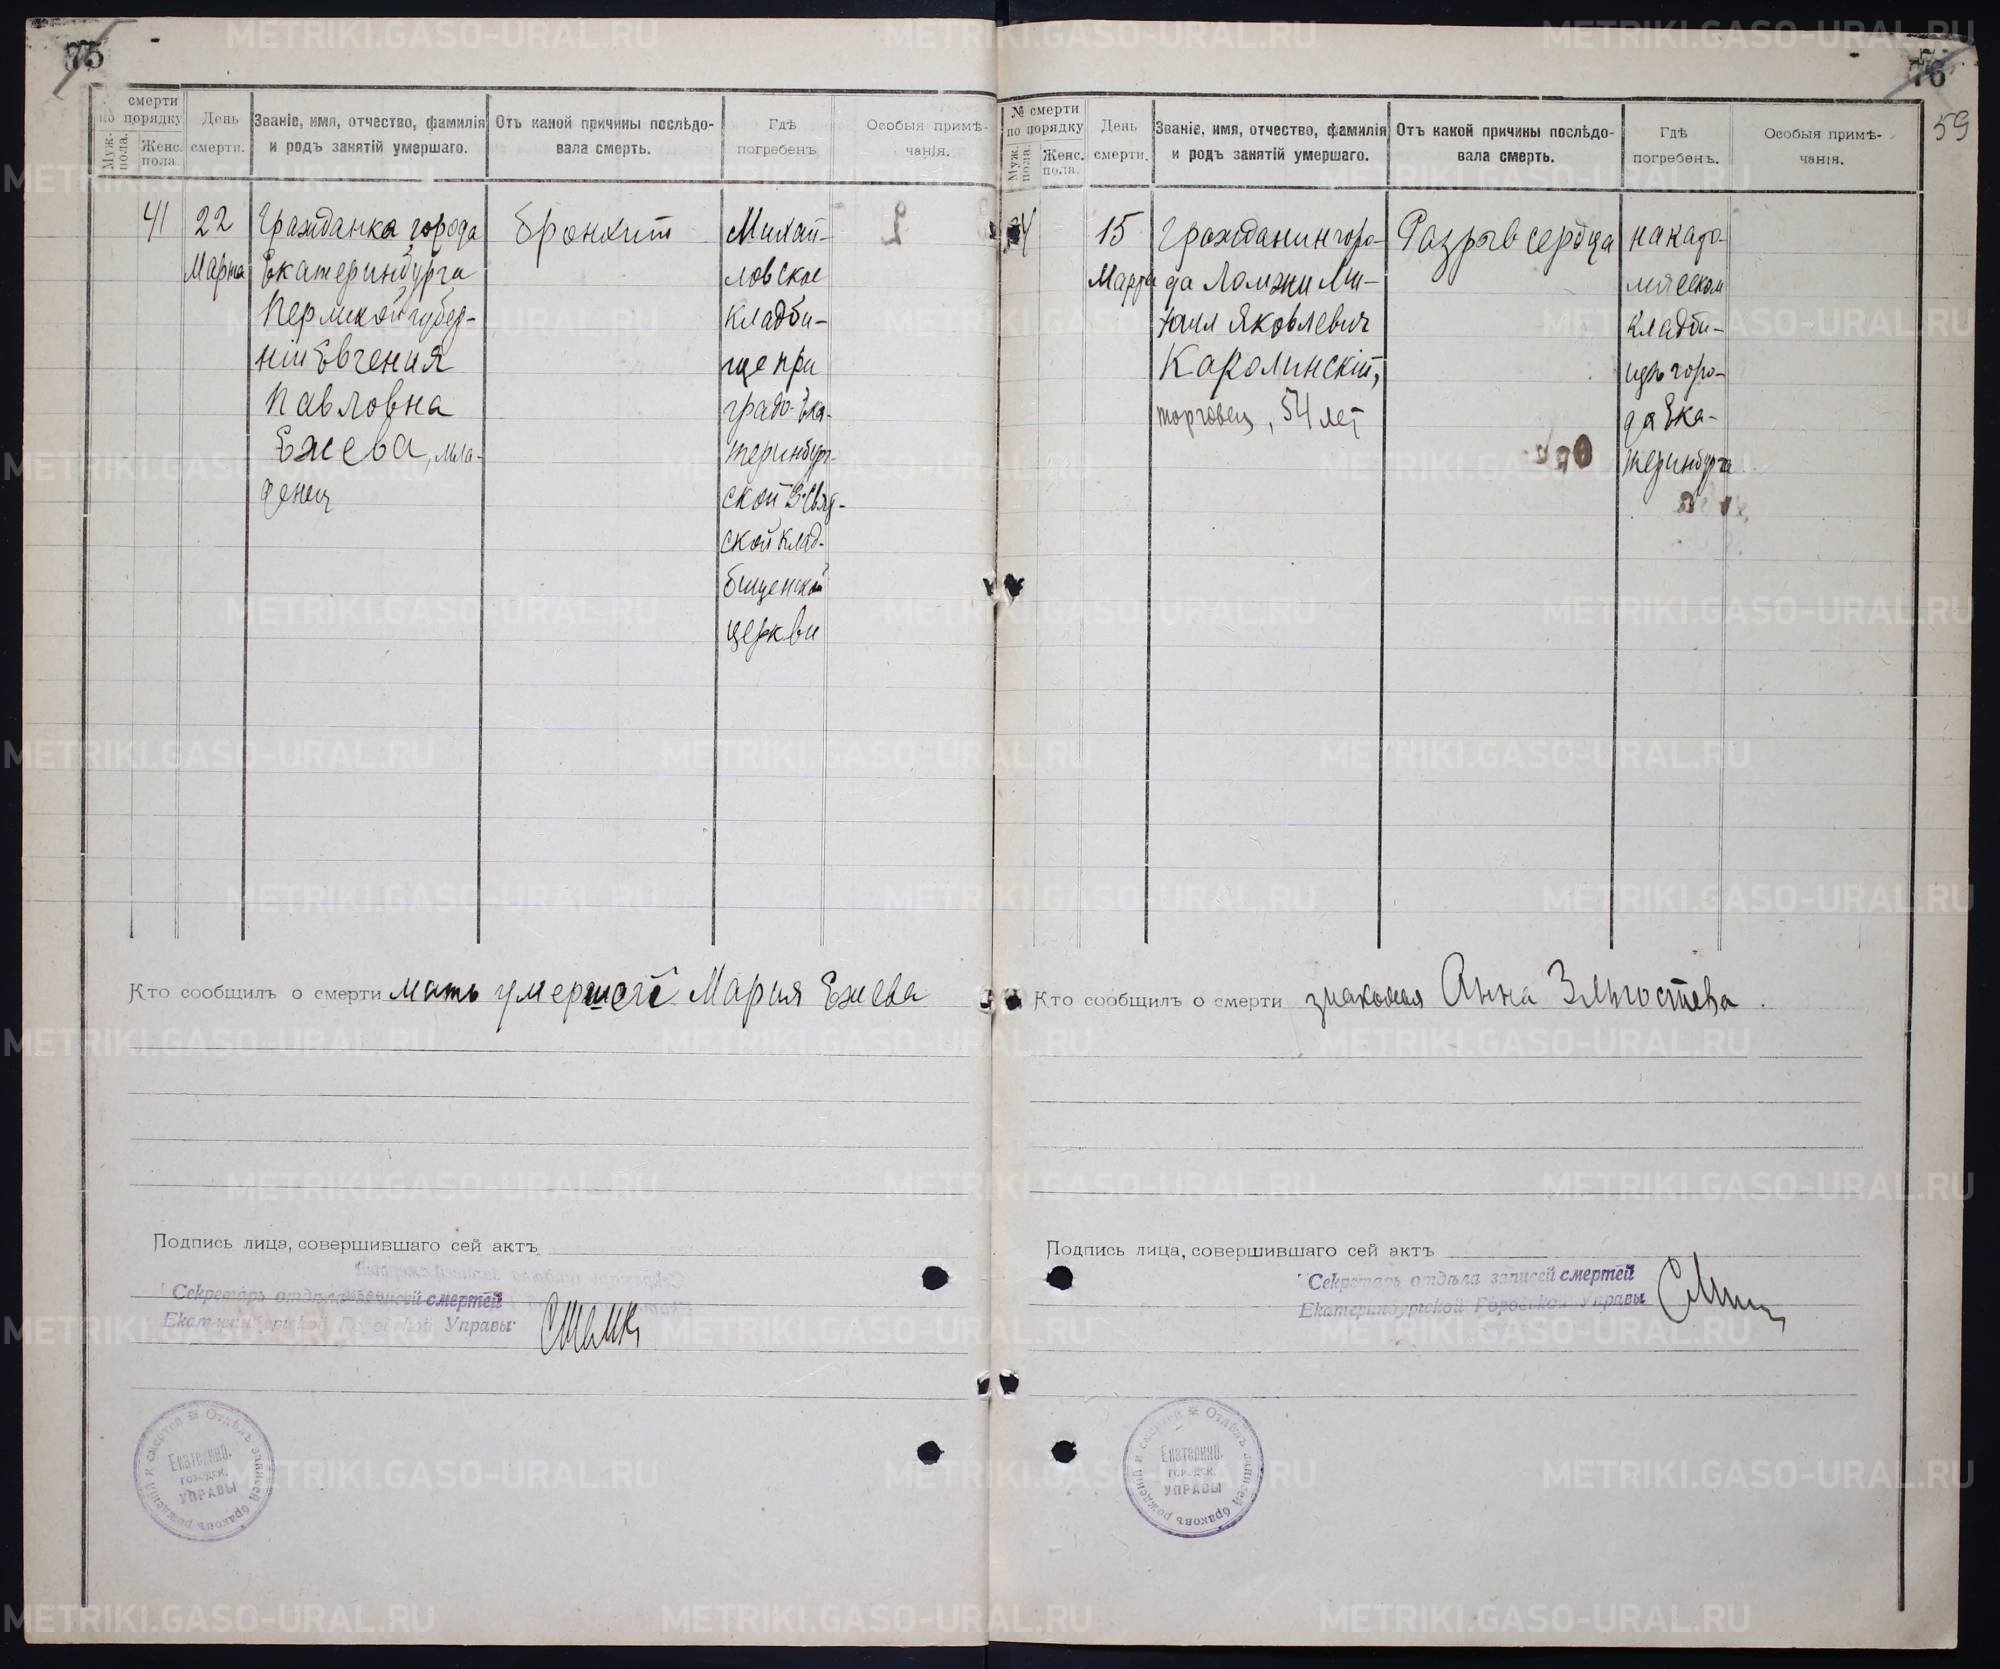 75
№ смерти
по порядку
Муж. пола.
Женс. пола.
День смерти.
Званіе, имя, отчество, фамилія и родъ занятій умершаго.
Отъ какой причины послѣдовала смерть.
Гдѣ погребенъ
Особыя примѣчанія.
41
22
Марта
Гражданка города
Екатеринбурга
Пермской губер-
ніи Евгения
Павловна
Ежева, мла-
денец
Бронхит
Михай-
ловское
кладби-
ще при
градо-Ека-
теринбург-
ской
ской клад-
бищенской
церкви
Кто сообщилъ о смерти мать умершей Мария Ежева
Подпись лица, совершившаго сей актъ
Секретарь отдѣла записей смертей
Екатеринбургской Городской Управы
Отдѣлъ записей браковъ рожденій и смертей
Екатеринб.
городск.
УПРАВЫ
76
59
№ смерти
по порядку
Муж. пола.
Женс. пола.
День смерти.
Званіе, имя, отчество, фамилія и родъ занятій умершаго.
Отъ какой причины послѣдовала смерть.
Гдѣ погребенъ.
Особыя примѣчанія.
15
Марта
Гражданин горо-
да Ломжи Ми-
хаил Яковлевич
Каролинскій,
торговец, 54 лет
Разрыв сердца
на като-
лическом
кладби-
щѣ горо-
да Ека-
теринбурга
Кто сообщилъ о смерти знакомая Анна
Подпись лица, совершившаго сей актъ
Секретарь отдѣла записей смертей
Екатеринбургской Городской Управы
Отдѣлъ записей браковъ рожденій и смертей
Екатеринб.
городск.
УПРАВЫ
METRIKI.GASO-URAL.RU